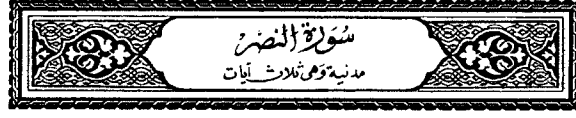 سُورَةُ النَّصْرِ
مدنية وهي ثلاث آيات